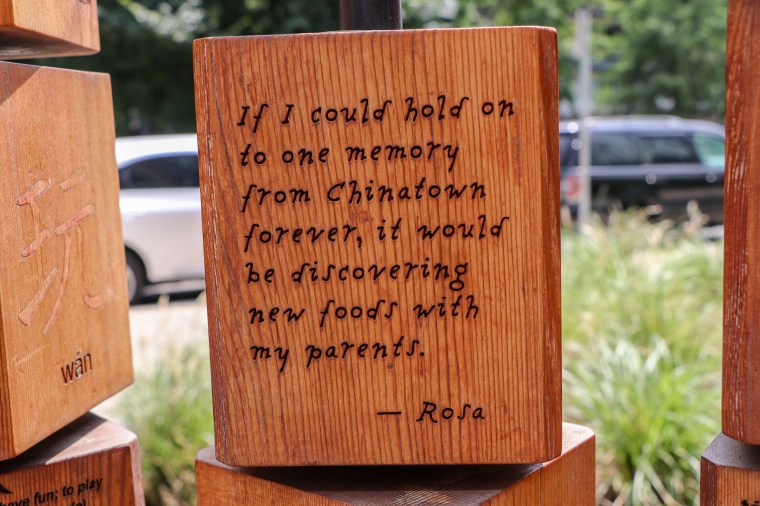 玩
wán
have fun; to play
If I could hold on
to one memory
from Chinatown
forever, it would
be discovering
new foods with
my parents.
— Rosa